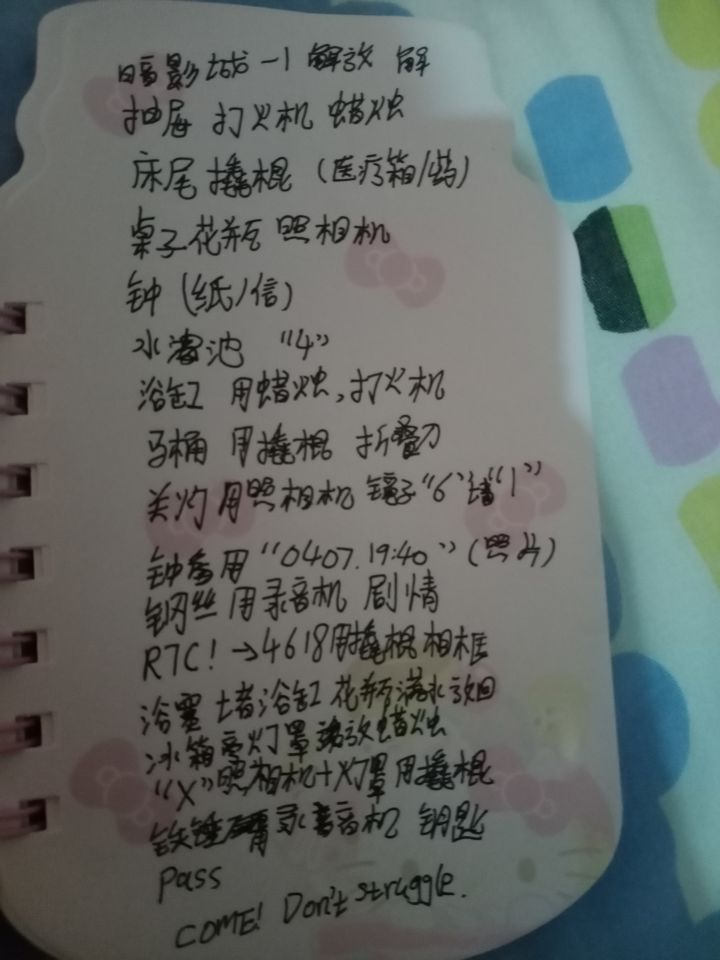 暗影城-1 解放 解
抽屉 打火机 蜡烛
床尾撬棍（医疗箱/药）
桌子花瓶 照相机
钟（纸/信）
水池 "4"
浴缸 用蜡烛,打火机
马桶 用撬棍 折叠刀
关灯用照相机 镜子"6"墙"1"
钟 用"0407.19:40"（照片）
钢丝 用录音机 剧情
R7C!→4618用撬棍相框
浴 堵浴缸 花瓶满水放回
冰箱 灯罩 放蜡烛
"X"照相机+灯罩用撬棍
铁锤 录音机 钥匙
Pass
COME! Don't struggle.